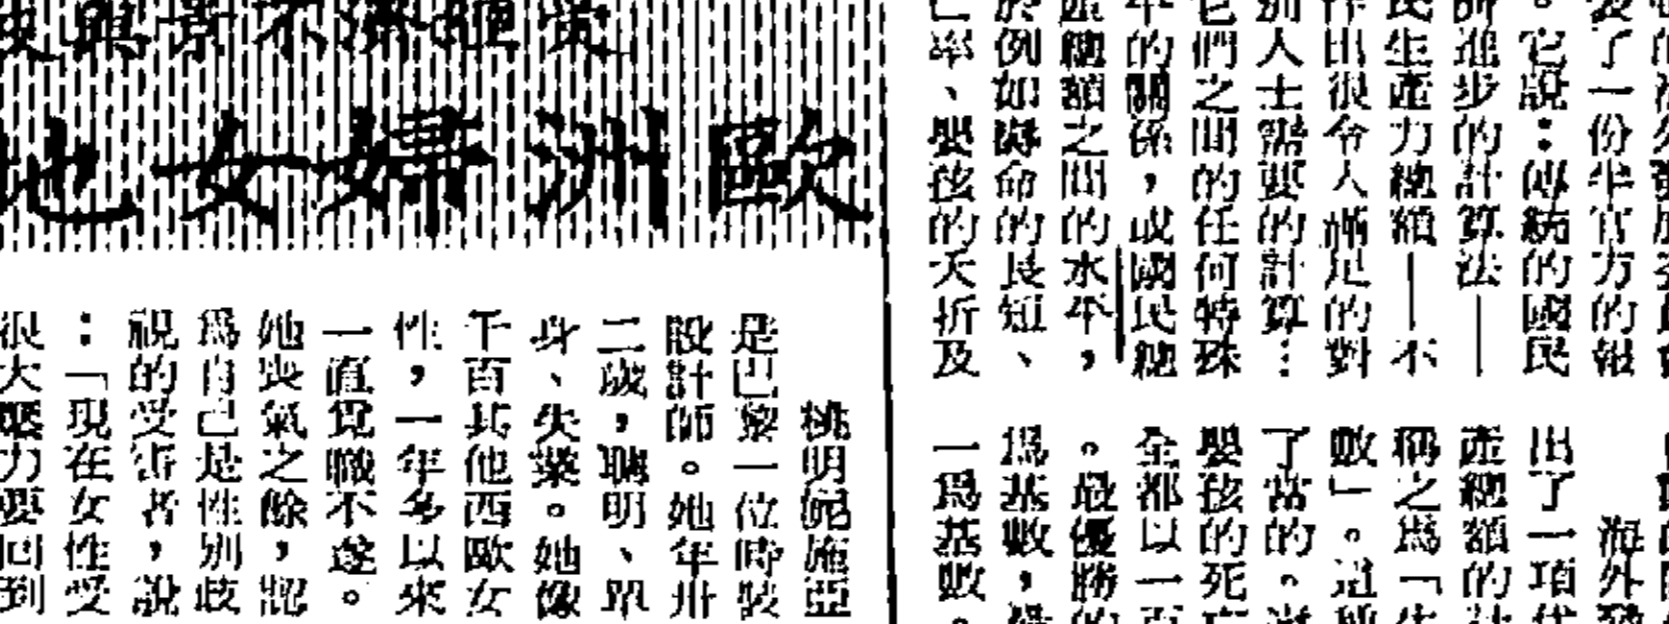 歐洲婦女地
桃明妮施亞
是巴黎一位時裝
設計師。她年卅
二歲，聰明、單
身、失業。她像
千百其他西歐女
性，一年多以來
一直覓職不遂。
她喪氣之餘，認
爲自己是性別歧
視的受害者，說
：「現在女性受
很大壓力要回到
表了一份半官方的報
。它說：傳統的國民
所進步的計算法——
民生產力總額——不
作出很令人滿足的對
洲人士需要的計算…
它們之間的任何特殊
年的關係，或國民總
總額之間的水平，
於例如壽命的長短、
亡率、嬰孩的夭折及
海外發
出了一項代
產總額的計
稱之爲「生
數」。這種
了當的。
嬰孩的死亡
全都以一百
。最優勝的
爲基數，最
一爲基數。